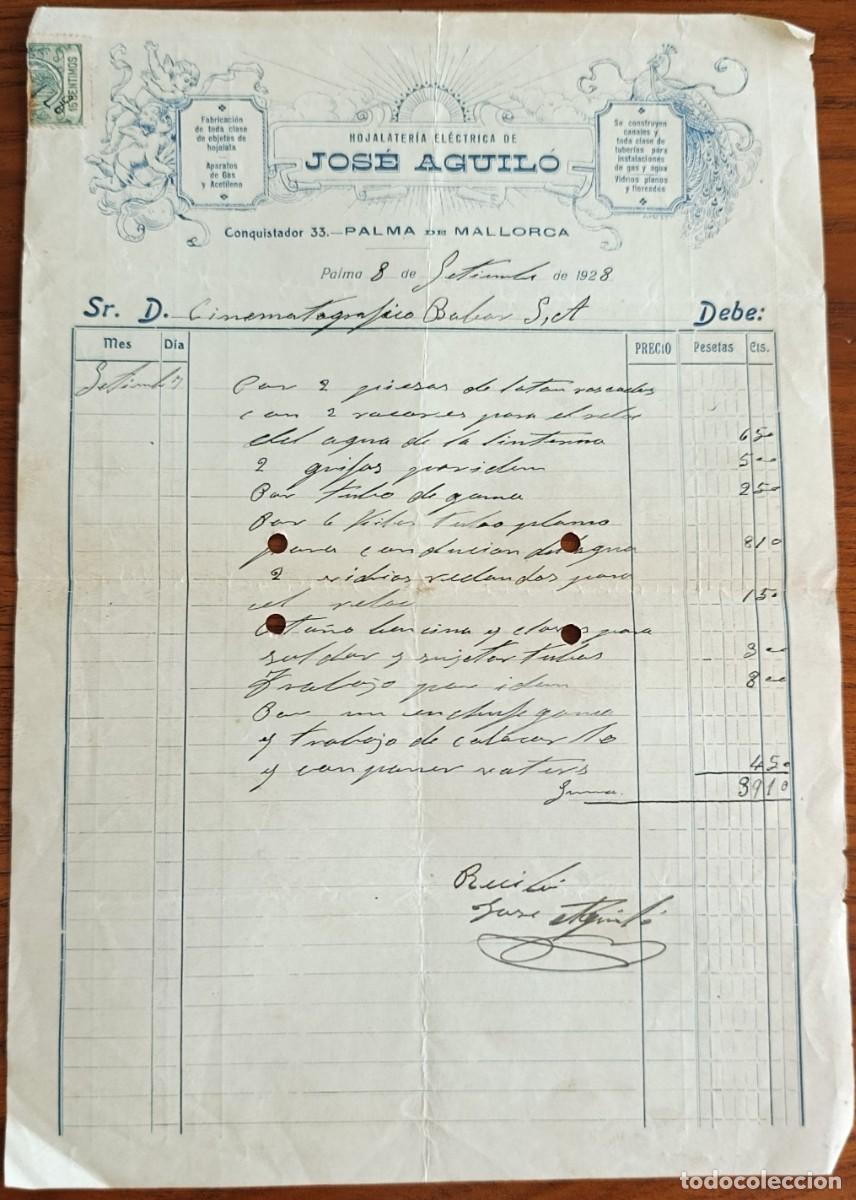 15 CENTIMOS
Fabricación
de toda clase
de objetos de
hojalata
Aparatos
de Gas
y Acetileno
HOJALATERÍA ELÉCTRICA DE
JOSÉ AGUILÓ
Se construyen
canales y
toda clase de
tuberías para
instalaciones
de gas y agua
Vidrios planos
y floreados
Conquistador 33.—PALMA DE MALLORCA
Palma 8 de Setiembre de 1928
Sr. D. Cinematografico Balear S, A Debe:
Mes Día PRECIO Pesetas Cts.
Setiembre 7 Por 2 piesas de laton roscades
con 2 racores para el reloc
del agua de la linterna 6 50
2 grifos par idem 5 00
Por tubo de goma 2 50
Por 6 Kilos tubo plomo
para conducion de agua 8 10
2 vidrios redondos para
el reloc 1 50
Estaño bencina y claves para
soldar y sujetar tubos 3 00
Trabajo par idem 8 00
Por un enchufe goma
y trabajo de colocarllo
y componer 4 50
Suma. 39 10
Recibí
Jose Aguiló
todocoleccion